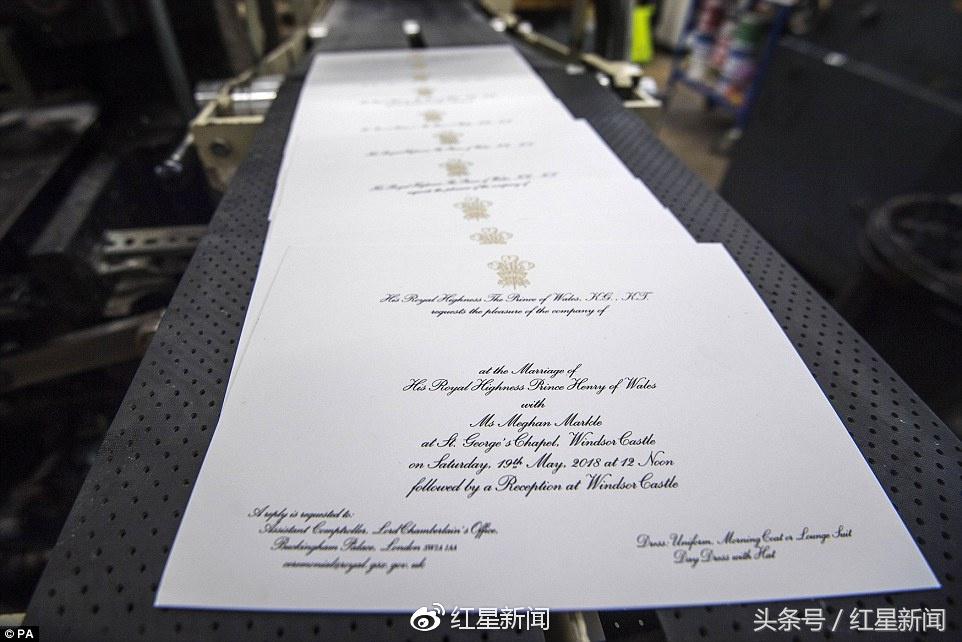 His Royal Highness The Prince of Wales, K.G., K.T.
requests the pleasure of the company of
His Royal Highness The Prince of Wales, K.G., K.T.
requests the pleasure of the company of
at the Marriage of
His Royal Highness Prince Henry of Wales
with
Ms Meghan Markle
at St. George's Chapel, Windsor Castle
on Saturday, 19th May, 2018 at 12 Noon
followed by a Reception at Windsor Castle
A reply is requested to:
Assistant Comptroller, Lord Chamberlain's Office,
Buckingham Palace, London SW1A 1AA
ceremonial@royal.gsx.gov.uk
Dress: Uniform, Morning Coat or Lounge Suit
Day Dress with Hat
© PA
红星新闻
头条号 / 红星新闻